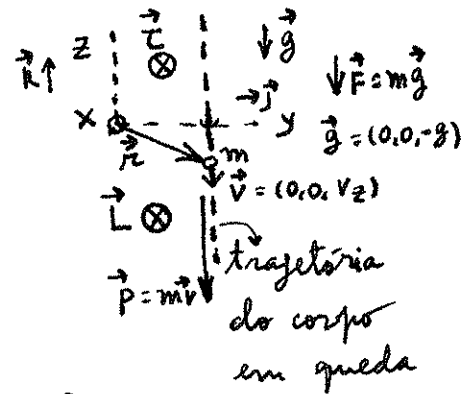 z
τ⃗ ⊗
↓ g⃗
k⃗ ↑
↓ F⃗ = mg⃗
→ j⃗
x
y
g⃗ = (0,0,-g)
r⃗
m
v⃗ = (0,0, Vz)
L⃗ ⊗
trajetória
p⃗ = mv⃗
do corpo
em queda